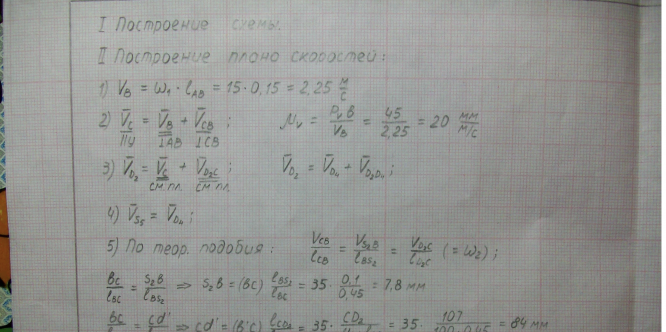 I Построение схемы.
II Построение плана скоростей:
1) V_B = ω₁ · l_AB = 15 · 0,15 = 2,25 м/с
2) V̄_C = V̄_B + V̄_CB ; μ_V = P_V в / V_B = 45 / 2,25 = 20 мм / м/с
||У ⊥AB ⊥CB
3) V̄_D₂ = V̄_C + V̄_D₂C ; V̄_D₂ = V̄_D₄ + V̄_D₂D₄ ;
см.пл. см.пл.
4) V̄_S₅ = V̄_D₄ ;
5) По теор. подобия : V_CB / l_CB = V_S₂B / l_BS₂ = V_D₂C / l_D₂C (= ω₂) ;
вс / l_BC = s₂в / l_BS₂ ⇒ s₂в = (вс) l_BS₂ / l_BC = 35 · 0,1 / 0,45 = 7,8 мм
⇒ cd' = l_CD₂ = 35 · CD₂ = 35 · 107 = 84 мм